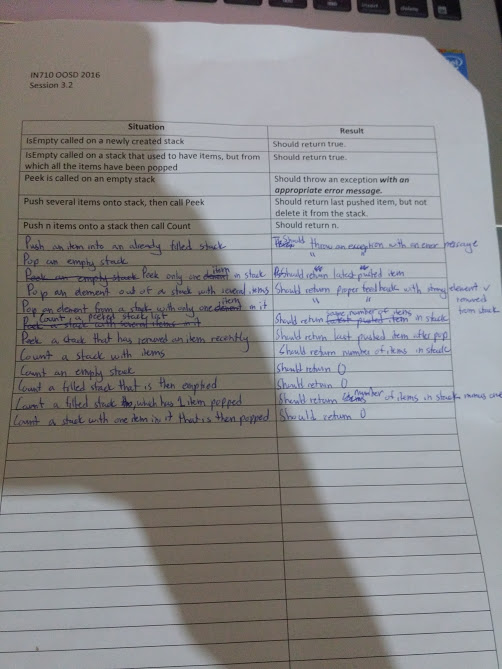 IN710 OOSD 2016
Session 3.2
Situation Result
IsEmpty called on a newly created stack Should return true.
IsEmpty called on a stack that used to have items, but from Should return true.
which all the items have been popped
Peek is called on an empty stack Should throw an exception with an
appropriate error message.
Push several items onto stack, then call Peek Should return last pushed item, but not
delete it from the stack.
Push n items onto stack then call Count Should return n.
Push an item into an already filled stack Should throw an exception with an error message
Pop an empty stack " "
Peek an empty stack Peek only one element item in stack Should return latest pushed item
Pop an element out of a stack with several items Should return proper feed back with string element
removed
from stack
Pop an element from a stack with only one element item in it " "
Count a peeked stack list Should return same number of items in stack
Peek a stack with several items in it last pushed item
Peek a stack that has removed an item recently Should return last pushed item after pop
Count a stack with items Should return number of items in stack
Count an empty stack Should return 0
Count a filled stack that is then emptied Should return 0
Count a filled stack which has 1 item popped Should return number of items in stack minus one
Count a stack with one item in it that is then popped Should return 0